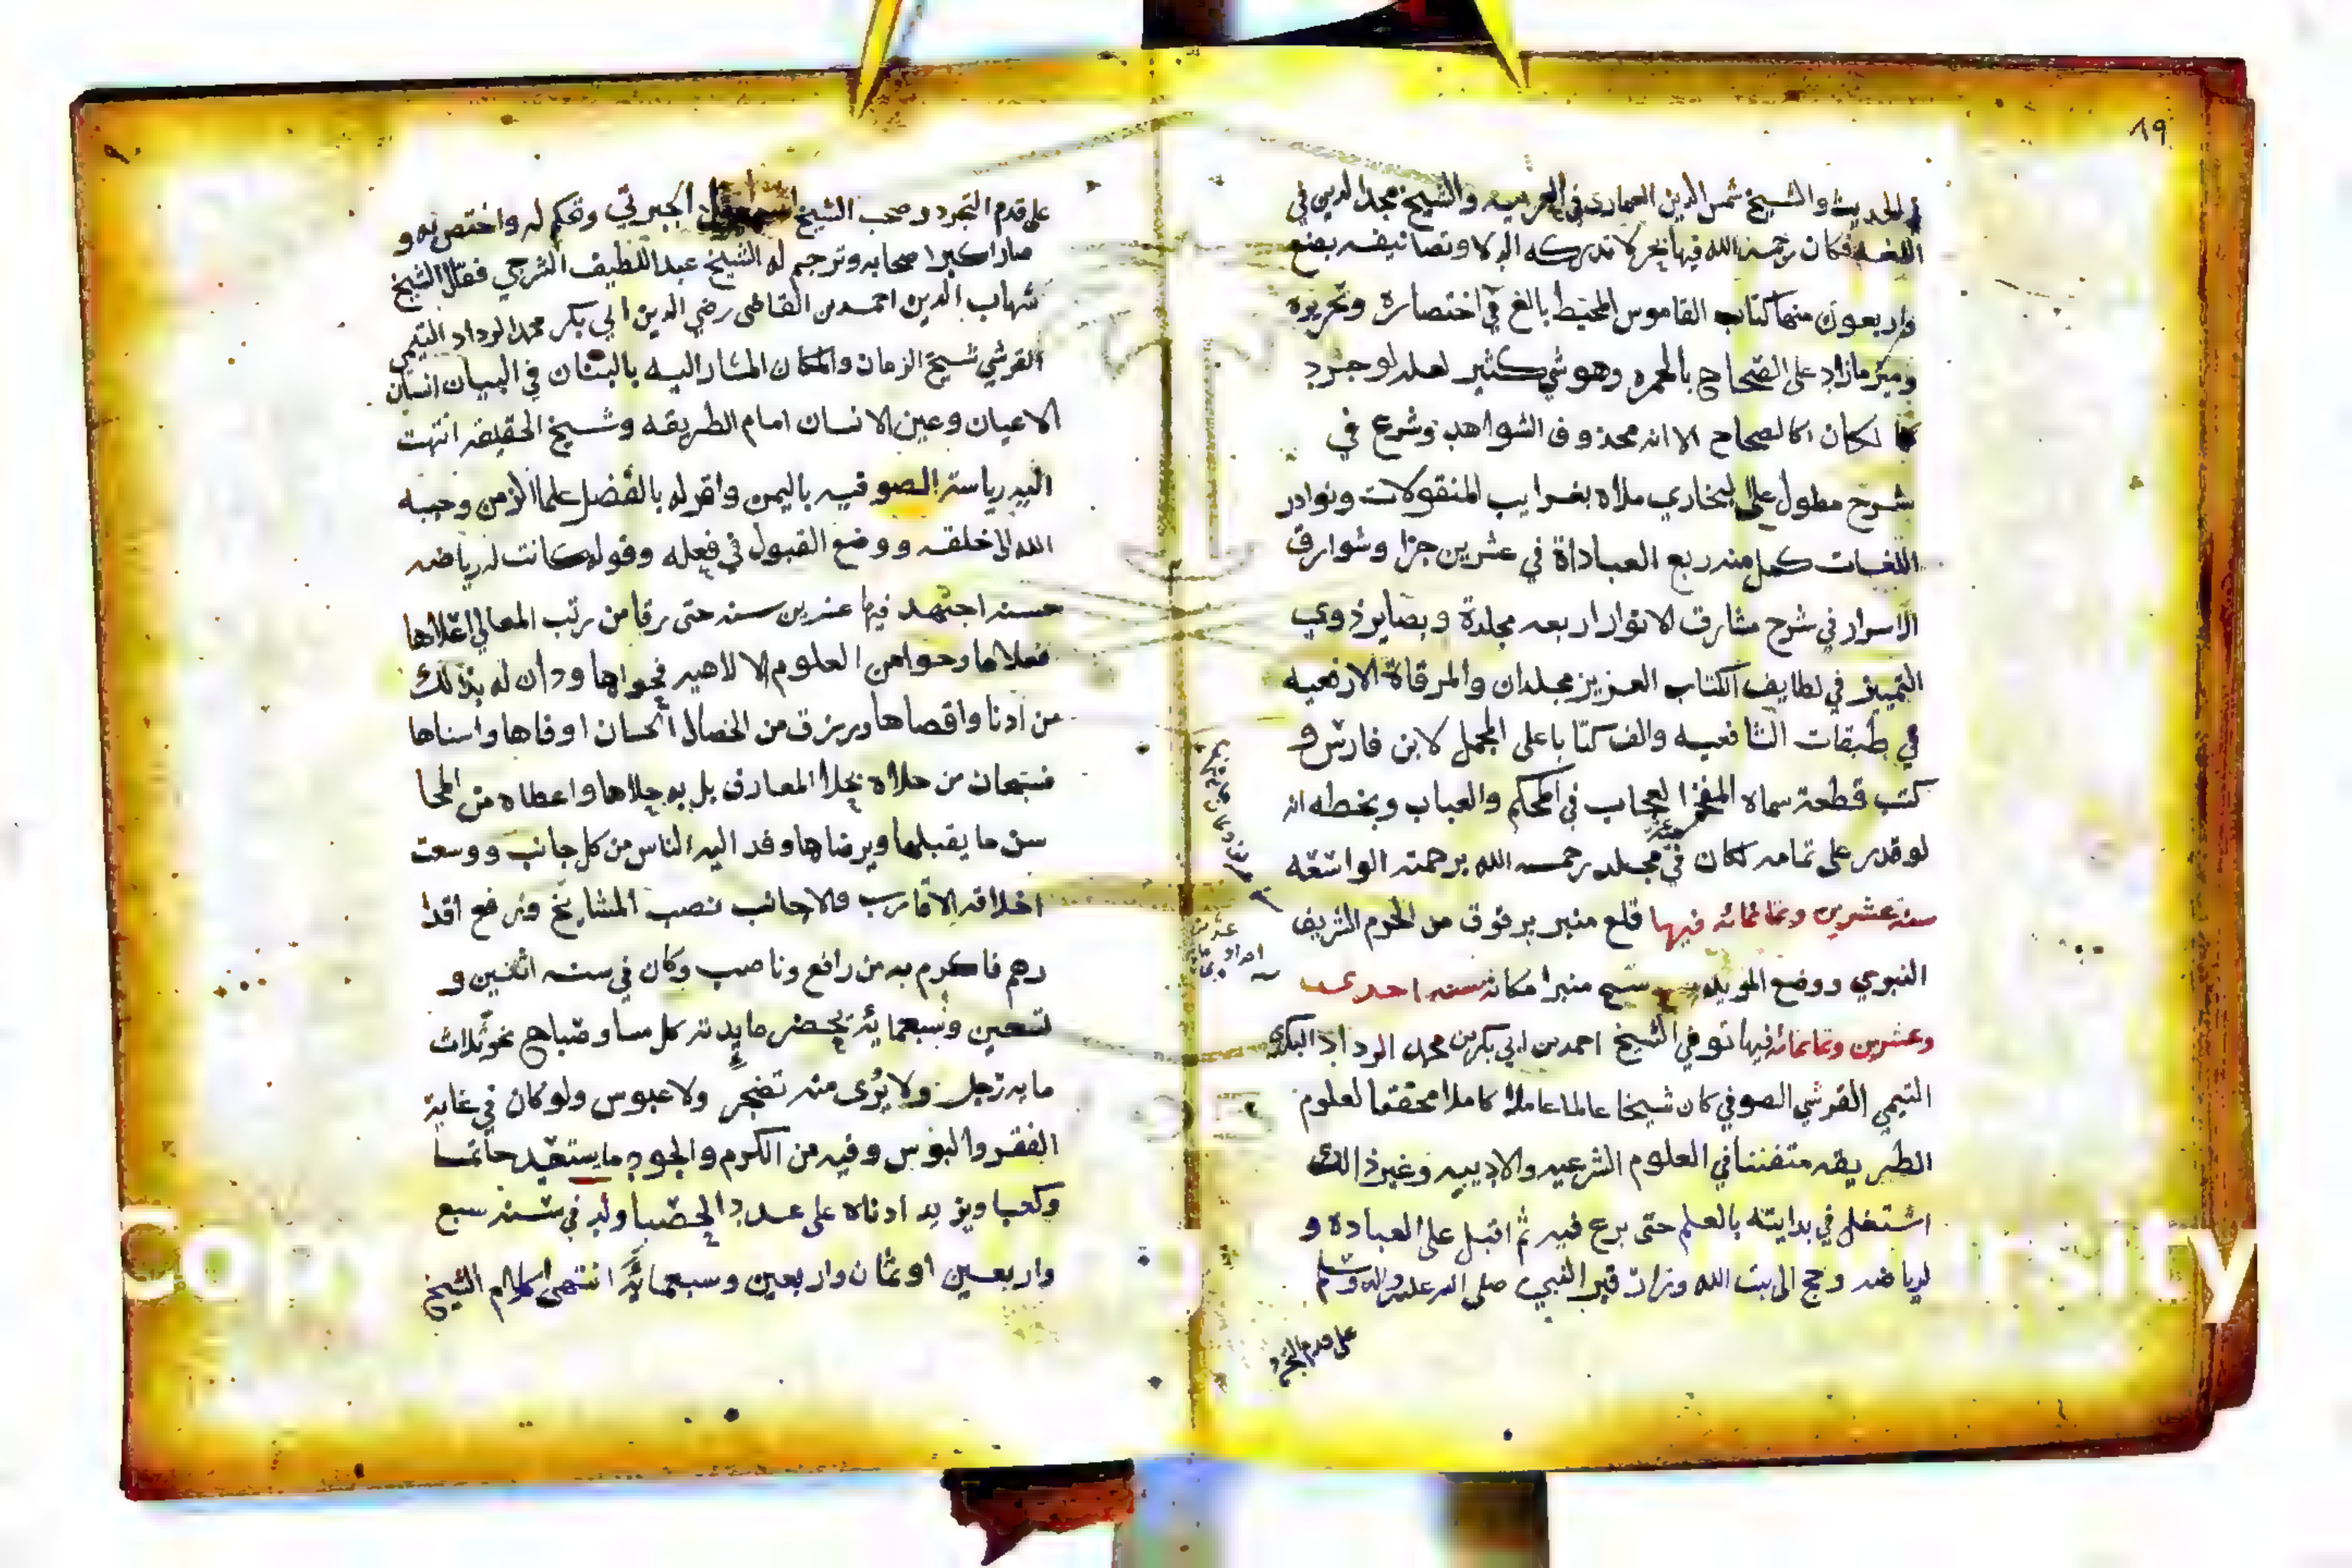 ١٩
الحديث والشيخ شمس الدين الغماري في العربيه والشيخ مجد الدين في
اللغه فكان رحمه الله فيها بحر لا تدركه الدلا وتصانيفه بضع
واربعون منها كتاب القاموس المحيط بالغ في اختصاره وتحريره
وميز ما زاد على الصحاح بالحمره وهو شي كثير لعله لو جرد
لكان كالصحاح الا انه محذوف الشواهد وشرع في
شرح مطول على البخاري ملاه بغرايب المنقولات ونوادر
اللغات كمل منه ربع العباداة في عشرين جزا وشوارق
الاسرار في شرح مشارق الانوار اربعه مجلدة وبصاير ذوي
التمييز في لطايف الكتاب العزيز مجلدان والمرقاة الارفعيه
في طبقات الشافعيه والف كتابا على المجمل لابن فارس و
كتب قطعة سماه العجاب في المحكم والعباب وبخطه انه
لو قدر على تمامه لكان في مجلد رحمه الله برحمته الواسعه
سنة عشرين وثمانمائه فيها قلع منبر برقوق من الحرم الشريف
النبوي ووضع المويد شيخ منبرا مكانه سنه احدى
وعشرين وثمانمائه فيها توفي الشيخ احمد بن ابي بكر بن محمد الرداد البكري
التيمي القرشي الصوفي كان شيخا عالما عاملا كاملا محققا لعلوم
الطريقه متفننا في العلوم الشرعيه والادبيه وغير ذالك
اشتغل في بدايته بالعلم حتى برع فيه ثم اقبل على العبادة و
لرياضه وحج الى بيت الله وزار قبر النبي صلى الله عليه واله وسلم
على قدم التجرد
على قدم التجرد وصحب الشيخ اسمعيل الجبرتي وتحكم له واختص به و
صار اكبر اصحابه وترجم له الشيخ عبد اللطيف الشرجي فقال الشيخ
شهاب الدين احمد بن القاضي رضي الدين ابي بكر محمد الرداد التيمي
القرشي شيخ الزمان والمكان المشار اليه بالبنان في البيان انسان
الاعيان وعين الانسان امام الطريقه وشيخ الحقيقه انتهت
اليه رياسة الصوفيه باليمن واقر له بالفضل علما الزمن وحببه
الله الى خلقه ووضع القبول في فعله وقوله كانت له رياضه
حسنه اجتهد فيها عشرين سنه حتى رقا من رتب المعالي اعلاها
فعلاها وحوا من العلوم فحواها ودان له بذالك
من ادنا واقصاها ورزق من الخصال الحسان اوفاها واسناها
فسبحان من حلاه بحلا المعارف بل به حلاها واعطاه من المحا
سن ما يقبلها ويرضاها وفد اليه الناس من كل جانب ووسعت
اخلاقه الاقارب والاجانب نصب المشايخ ورفع اقدا
رهم فاكرم به من رافع وناصب وكان في سنه اثنين و
تسعين وسبعمايه يحضر مايدته كل مسا وصباح نحو ثلاث
مايه رجل ولا يرى منه تضجر ولا عبوس ولو كان في غاية
الفقر والبوس وفيه من الكرم والجود ما يستعبد حاتما
وكعبا ويزيد ادناه على عدد الحصبا ولد في سنه سبع
واربعين او ثمان واربعين وسبعمائه انتهى كلام الشيخ